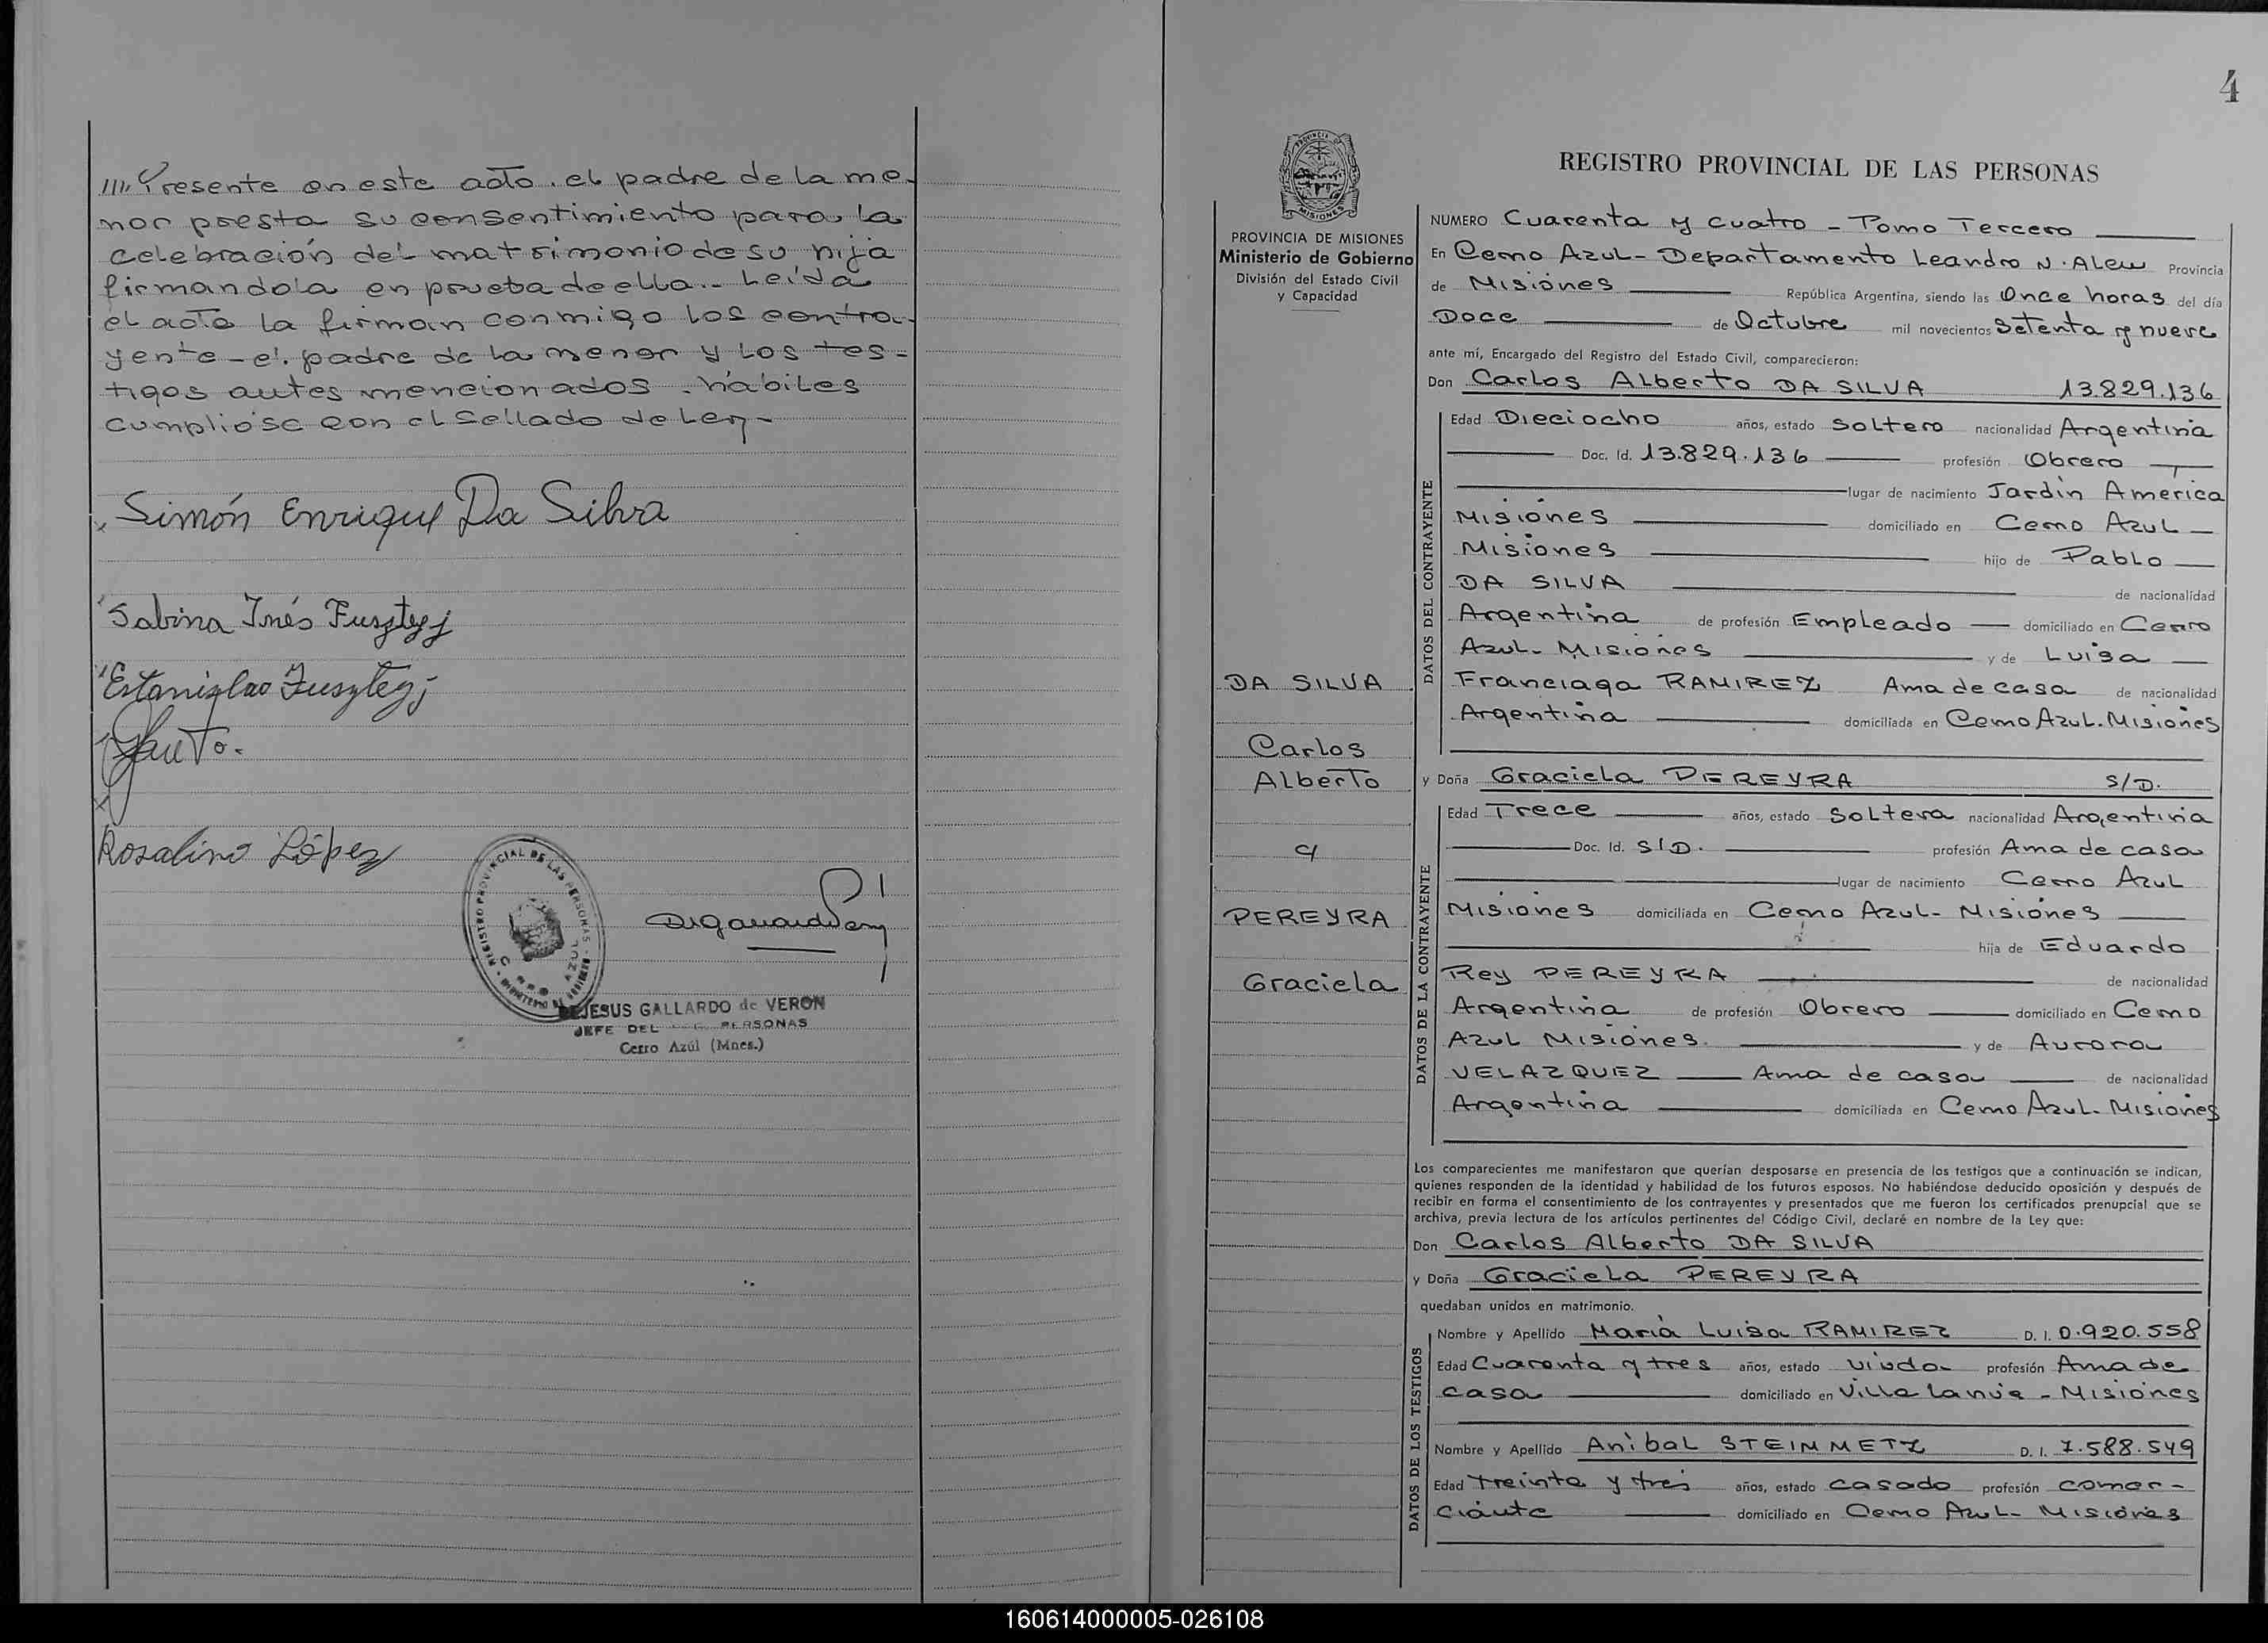 //// Presente en este acto. el padre de la me-
nor presta su consentimiento para la
celebración del matrimonio de su hija
firmandola en prueba de ella.- Leída
el acta la firman conmigo los contra-
yente - el padre de la menor y los tes-
tigos antes mencionados. hábiles
Cumpliose con el Sellado de Ley-
Simón Enrique Da Silva
Sabina Inés Fusztegj
Estanislao Fusztegj
Rosalino López
REGISTRO PROVINCIAL DE LAS PERSONAS
JESUS GALLARDO de VERON
JEFE DEL PERSONAS
Cerro Azúl (Mnes.)
4
PROVINCIA
MISIONES
PROVINCIA DE MISIONES
Ministerio de Gobierno
División del Estado Civil
y Capacidad
DA SILVA
Carlos
Alberto
c/
PEREYRA
Graciela
REGISTRO PROVINCIAL DE LAS PERSONAS
NUMERO Cuarenta y cuatro - Tomo Tercero
En Cerro Azul - Departamento Leandro N. Alem Provincia
de Misiones República Argentina, siendo las Once horas del día
Doce de Octubre mil novecientos Setenta y nueve
ante mí, Encargado del Registro del Estado Civil, comparecieron:
Don Carlos Alberto DA SILVA 13.829.136
DATOS DEL CONTRAYENTE
Edad Dieciocho años, estado Soltero nacionalidad Argentina
Doc. Id. 13.829.136 profesión Obrero
lugar de nacimiento Jardin America
Misiones domiciliado en Cerro Azul -
Misiones hijo de Pablo
DA SILVA de nacionalidad
Argentina de profesión Empleado domiciliado en Cerro
Azul - Misiones y de Luisa
Franciaga RAMIREZ Ama de casa de nacionalidad
Argentina domiciliada en Cerro Azul. Misiones
y Doña Graciela PEREYRA S/D.
DATOS DE LA CONTRAYENTE
Edad Trece años, estado Soltera nacionalidad Argentina
Doc. Id. S/D. profesión Ama de casa
lugar de nacimiento Cerro Azul
Misiones domiciliada en Cerro Azul - Misiones
hija de Eduardo
Rey PEREYRA de nacionalidad
Argentina de profesión Obrero domiciliado en Cerro
Azul Misiones. y de Aurora
VELAZQUEZ Ama de casa de nacionalidad
Argentina domiciliada en Cerro Azul - Misiones
Los comparecientes me manifestaron que querían desposarse en presencia de los testigos que a continuación se indican,
quienes responden de la identidad y habilidad de los futuros esposos. No habiéndose deducido oposición y después de
recibir en forma el consentimiento de los contrayentes y presentados que me fueron los certificados prenupcial que se
archiva, previa lectura de los artículos pertinentes del Código Civil, declaré en nombre de la Ley que:
Don Carlos Alberto DA SILVA
y Doña Graciela PEREYRA
quedaban unidos en matrimonio.
DATOS DE LOS TESTIGOS
Nombre y Apellido María Luisa RAMIREZ D. I. 0.920.558
Edad Cuarenta y tres años, estado viuda profesión Ama de
casa domiciliado en Villa Lanús - Misiones
Nombre y Apellido Anibal STEINMETZ D. I. 7.588.549
Edad treinta y tres años, estado casado profesión comer-
ciante domiciliado en Cerro Azul - Misiones
160614000005-026108